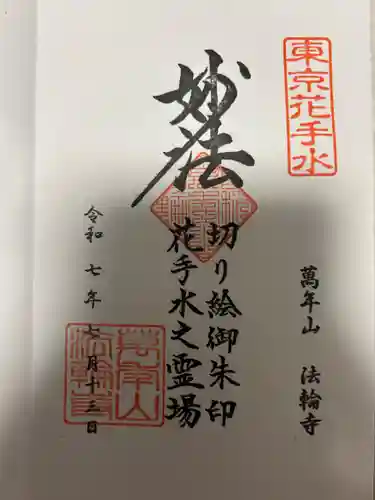 東京花手水
萬年山　法輪寺
妙法
切り絵御朱印
花手水之霊場
令和七年七月十三日
萬年山
法輪寺